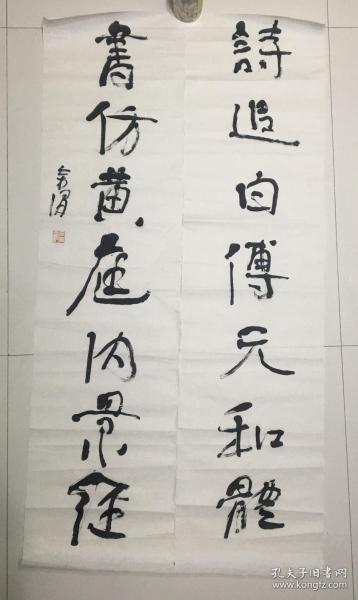 詩追白傅元和體
書仿黄庭内景經
孔夫子旧书网
www.kongfz.com